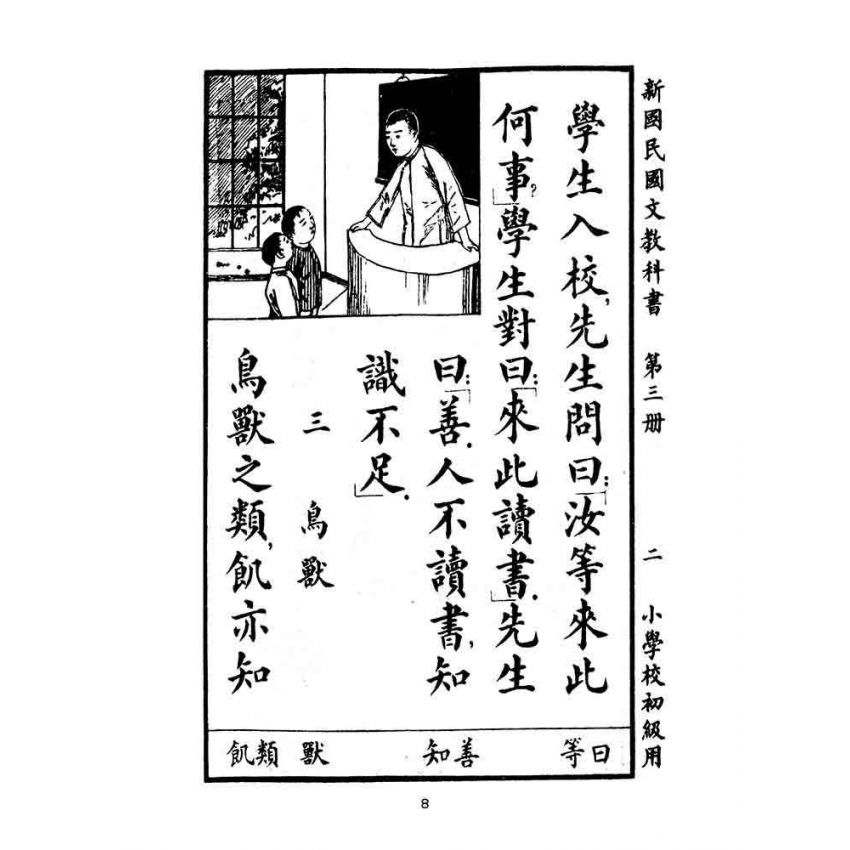 新國民國文教科書　第三册　二　小學校初級用
學生入校,先生問曰:「汝等來此
何事?」學生對曰:「來此讀書.」先生
曰:「善.人不讀書,知
識不足.」
三　鳥獸
鳥獸之類,飢亦知
曰等
善知
獸
類飢
8